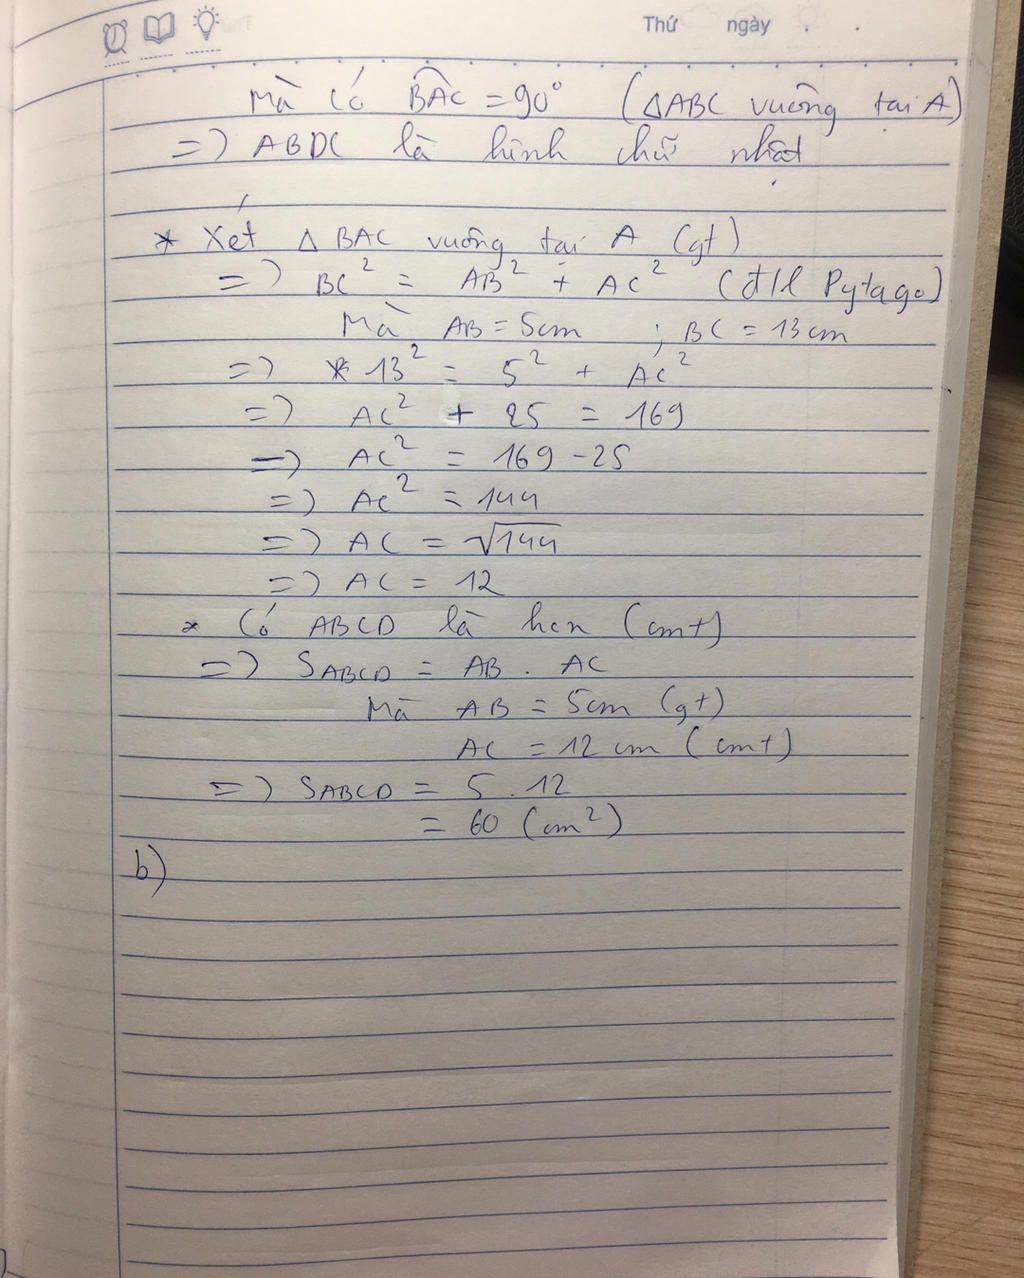 Thứ ngày
Mà có BÂC = 90° (△ABC vuông tại A)
=> ABDC là hình chữ nhật
* Xét △ BAC vuông tại A (gt)
=> BC² = AB² + AC² (đ/l Pytago)
Mà AB = 5cm ; BC = 13 cm
=> * 13² = 5² + AC²
=> AC² + 25 = 169
=> AC² = 169 - 25
=> AC² = 144
=> AC = √144
=> AC = 12
* Có ABCD là hcn (cmt)
=> SABCD = AB . AC
Mà AB = 5cm (gt)
AC = 12 cm (cmt)
=> SABCD = 5 . 12
= 60 (cm²)
b)